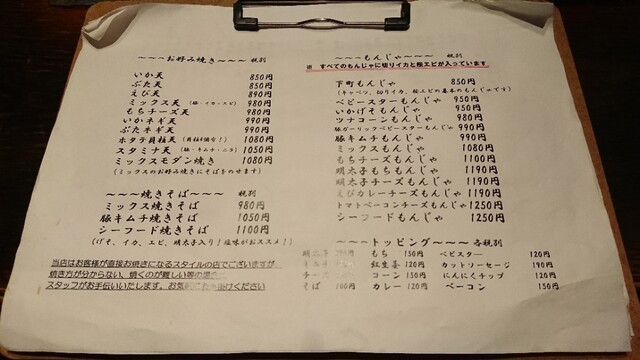 ～～～お好み焼き～～～ 税別
いか天 850円
ぶた天 850円
えび天 890円
ミックス天 (豚・イカ・エビ) 980円
もちチーズ天 980円
いかネギ天 990円
ぶたネギ天 990円
ホタテ貝柱天 1080円
スタミナ天 (豚・キムチ・ニラ) 1050円
ミックスモダン焼き 1080円
(ミックスのお好み焼きにそば子のせます)
～～～焼きそば～～～ 税別
ミックス焼きそば 980円
豚キムチ焼きそば 1050円
シーフード焼きそば 1100円
(げそ、イカ、エビ、明太子入り！塩味がおススメ！)
当店はお客様が直接お焼きになるスタイルの店でございますが、
焼き方が分からない、焼くのが難しい等の場合
スタッフがお手伝いいたします。お気軽にお声掛けください
～～～もんじゃ～～～ 税別
※ すべてのもんじゃに切りイカと桜エビが入っています
下町もんじゃ 850円
(キャベツ、切りイカ、桜エビの基本のもんじゃです)
ベビースターもんじゃ 950円
いかげそもんじゃ 950円
ツナコーンもんじゃ 980円
豚ガーリックベビースターもんじゃ 990円
豚キムチもんじゃ 990円
ミックスもんじゃ 1080円
もちチーズもんじゃ 1100円
明太子もちもんじゃ 1190円
明太子チーズもんじゃ 1190円
えびカレーチーズもんじゃ 1190円
トマトベーコンチーズもんじゃ 1250円
シーフードもんじゃ 1250円
～～～トッピング～～～ 各税別
明太子 もち 150円 ベビスター 120円
キムチ 紅生姜 120円 カットソーセージ 190円
チーズ コーン 150円 にんにくチップ 120円
そば 100円 カレー 120円 ベーコン 150円